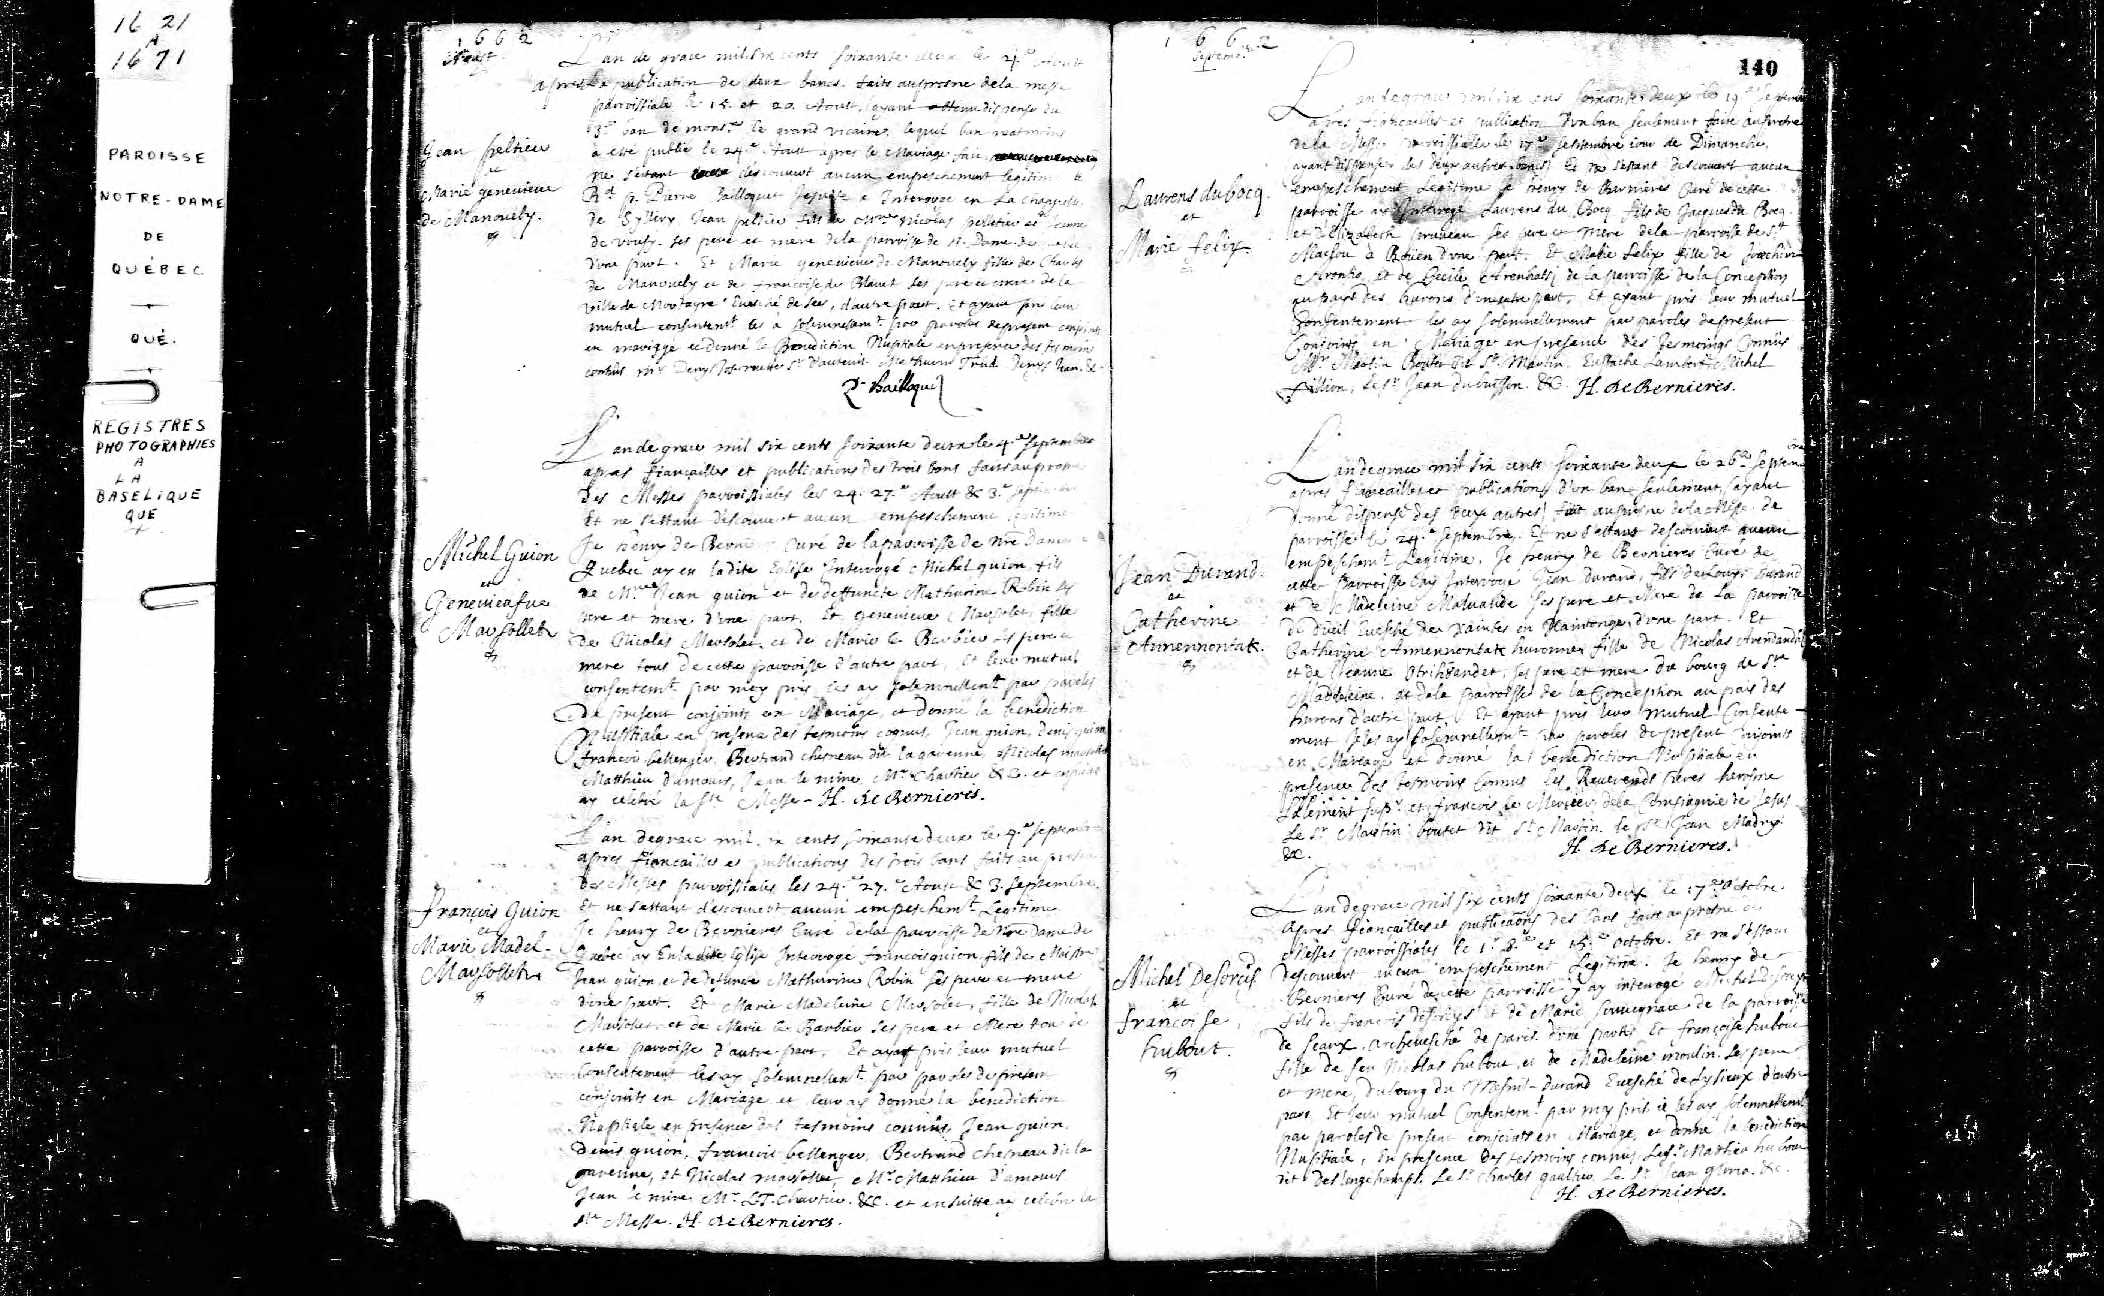 16 21
A
16 71
PAROISSE
NOTRE-DAME
DE
QUÉBEC
QUÉ.
REGISTRES
PHOTOGRAPHIES
A
LA
BASELIQUE
QUE
1662
Aoust.
L'an de grace mil six cents soixante deux le Aoust
apres la publication de deux bancs. faits au prosne de la messe
parroissiale le 15. et 20. Aoust, ayant obtenu dispense du
3.e ban de mons.r le grand vicaire, lequel ban neatmoins
a esté publié le 24.e Aoust apres le Mariage fait
ne s'estant descouvert aucun empeschement legitime le
R.d p. Pierre Bailloquet Jesuite a Interogé en La Chappelle
de Syllery Jean peltier fils de Nicolas pelletier et Jeanne
de vousy. ses pere et mere de la parroisse de n. Dame de
d'une part. Et Marie genevieve de Manouely fille de Charles
de Manouely et de francoise de Blanct ses pere et mere de la
ville de Evesché de d'autre part. Et ayant pris leur
mutuel consentem.t les a solemnelem.t par paroles de present conjoints
en mariage et donné la Benediction Nuptiale en presence des tesmoins
connus Denys d'auteuil Denys Jean &
P. Bailloquet
Jean peltier
et
Marie genevieve
de Manouely.
L'an de grace mil six cents soixante deux le 4.e septembre
apres fiançailles et publications des trois bans faits au prosne
des Messes parroissiales les 24. 27.e Aoust & 3.e septembre
Et ne s'estant descouvert aucun empeschement legitime
Je henry de Bernieres Curé de la parroisse de nre Dame de
Quebec ay en ladite Eglise Interrogé Michel guion fils
de M.re Jean guion et de deffuncte Mathurine Robin ses
pere et mere d'une part. Et genevieve Marsolet, fille
de Nicolas Marsolet et de Marie le Barbier ses pere et
mere tous de cette parroisse d'autre part, Et leur mutuel
consentem.t par moy pris les ay solemnellem.t par paroles
de present conjoints en Mariage, et donné la benediction
Nuptiale en presence des tesmoins connus, Jean guion, denis guion,
francois bellenger, Bertrand chesneau dit la garenne, Nicolas marsolet
Matthieu d'amours, Jean le mire, M.r Chartier &c. et ensuitte
ay celebré la s.te Messe - H. de Bernieres.
Michel Guion
et
Genevieafue
Marsollet
L'an de grace mil six cents soixante deux le 4.e septembre
apres fiancailles et publications des trois bans faits au prosne
des Messes parroissiales les 24.e 27.e Aoust & 3. septembre.
Et ne s'estant descouvert aucun empeschem.t Legitime
Je henry de Bernieres Curé de la parroisse de Nre Dame de
Quebec ay En ladite Eglise Interrogé francois guion fils de Maistre
Jean guion et de defuncte Mathurine Robin ses pere et mere
d'une part. Et Marie Madeleine Marsolet, fille de Nicolas
Marsolet et de Marie le Barbier ses pere et Mere tous de
cette parroisse d'autre part. Et ayant pris leur mutuel
Consentement les ay solemnellem.t par paroles de present
conjoints en Mariage et leur ay donné la benediction
Nuptiale en presence des tesmoins connus, Jean guion,
Denis guion, francois bellenger, Bertrand Chesneau dit la
garenne, et Nicolas marsolet, M.r Matthieu d'amours
Jean le mire M.r Chartier. &c. et ensuitte ay celebré la
s.te Messe. H. de Bernieres.
François Guion
et
Marie Madel-
Marsollet
1662
septemb.
140
L'an de grace mil six cens soixante deux le 19.e septemb
apres fiancailles et publication d'un ban seulement faite au prosne
de la Messe parroissialle le 17.e septembre jour de Dimanche,
ayant dispensé des deux autres bans. Et ne s'estant descouvert aucun
empeschement Legitime Je henry de Bernieres Curé de cette
parroisse ay Interogé Laurens du Bocq fils de Jacques du Bocq
et d'Elizabeth ses pere et Mere de la parroisse de S.t
Maclou à Rouen d'une part. Et Marie Felix fille de Joachim
Arontio, et de Cecile Arenhatsi de la parroisse de la Conception
au pays des hurons d'autre part, Et ayant pris leur mutuel
Consentement les ay solemnellement par paroles de present
Conjoints en Mariage en presence des tesmoings Connus
M.r Martin Boutet dit S.t Martin. Eustache Lambert, Michel
fillion, le s.r Jean du buisson. &c. H. de Bernieres.
Laurens du bocq.
et
Marie felix.
L'an de grace mil six cents soixante deux le 26.e Septem
apres fiancailles et publication d'un ban seulement, ayant
donné dispense des deux autres, fait au prosne de la Messe de
parroisse le 24.e septembre, Et ne s'estant descouvert aucun
empeschem.t Legitime, Je henry de Bernieres Curé de
cette parroisse ay Interogé Jean durand, fils de Louys durand
et de Madeleine Malvaude ses pere et Mere de La parroisse
de Evesché de Xaintes en d'une part. Et
Catherine Annennontak huronne, fille de Nicolas Arendanki
et de Jeanne Otrihsandet, ses pere et mere du bourg de S.te
Madeleine. et de la parroisse de la Conception au pays des
hurons d'autre part. Et ayant pris leur mutuel Consente-
ment Je les ay solemnellem.t par paroles de present conjoints
en Mariage et donné la benediction Nuptiale en
presence des tesmoins Connus les Reverends Peres herosme
Lalemant sup.r et francois le Mercier de la Compagnie de Jesus
Le S.r Martin boutet dit S.t Martin. le s.r Jean Madry
&c. H. de Bernieres.
Jean Durand.
et
Catherine
Annennontak.
L'an de grace mil six cents soixante deux le 17.e Octobre.
Apres fiancailles et publicaõns des bans faits au prosne des
Messes parroissiales le 1.r 8.e et 15.e octobre. Et ne s'estant
descouvert aucun empeschement Legitime. Je henry de
Bernieres Curé de cette parroisse ay interogé Michel Desorcys
fils de francois desorcys et de Marie de la parroisse
de Sceaux, archevesché de paris d'une part, Et françoise hubout
fille de feu Nicolas hubout, et de Madeleine moulin. ses pere
et mere, du bourg du Mesnil-durand Evesché de Lysieux d'autre
part, Et leur mutuel Consentem.t par moy pris je les ay solemnellement
par paroles de present conjoints en Mariage, et donné la benediction
Nuptiale, En presence des tesmoins connus, Le s.r Mathieu hubout
dit Des longchamps. Le s.r Charles gaultier Le s.r Jean gloria. &c.
H. de Bernieres.
Michel Desorcys
et
francoise
hubout.